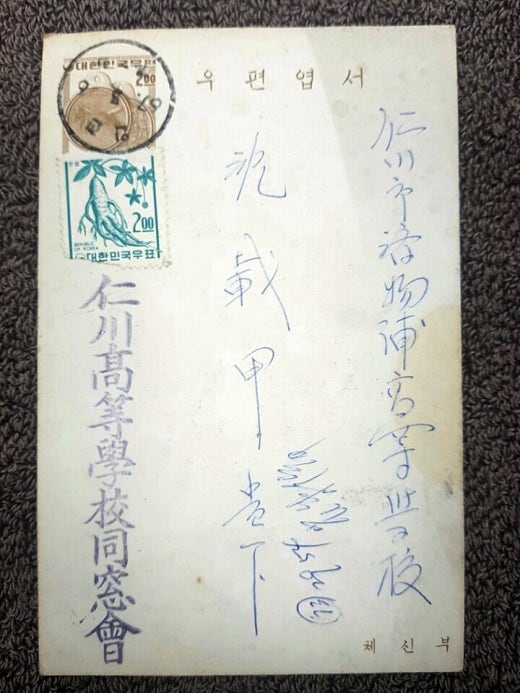 우편엽서
仁川市濟物浦高等學校
沈載甲 貴下
대한민국우편
2.00
2.00
REPUBLIC
OF KOREA
대한민국우표
仁川高等學校同窓會
체신부